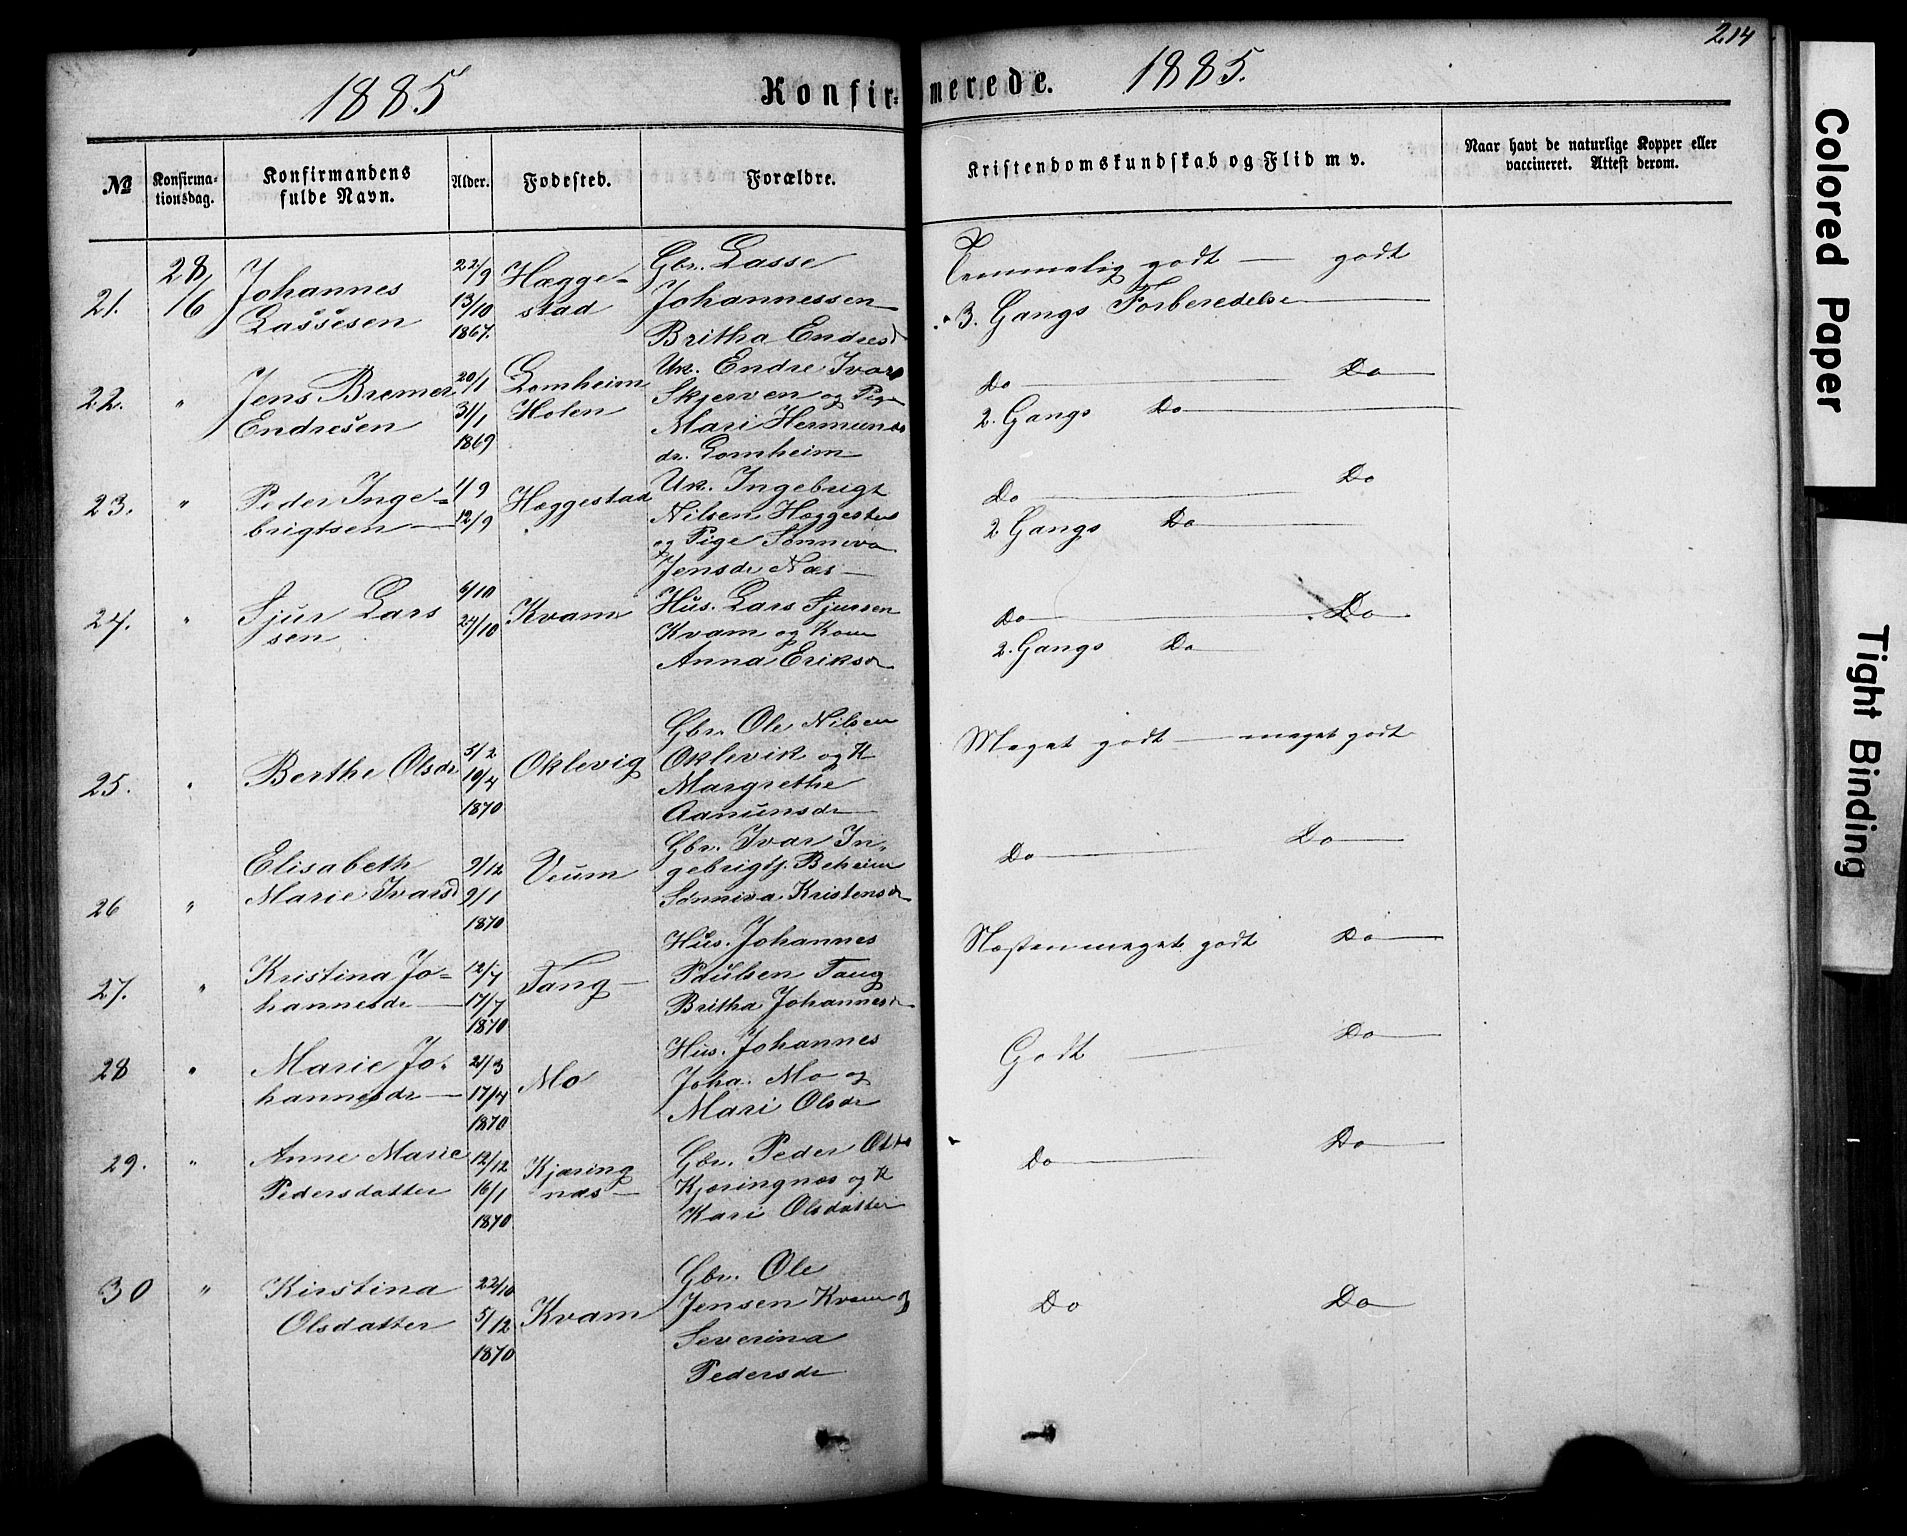 214
1885 Konfirmerede. 1885.
№ Konfirmationsdag. Konfirmandens fulde Navn. Alder. Fødested. Forældre. Kristendomskundskab og Flid m v. Naar havt de naturlige Kopper eller vaccineret. Attest derom.
21. 28/16 Johannes Lassesen 22/9 13/10 1867. Hæggestad Gbr. Lasse Johannessen Britha Endresd Temmelig godt — godt
3. Gangs Forberedelse
22. " Jens Bremer Endresen 20/1 31/1 1869 Lomheim Holen Uk. Endre Ivars Skjerven og Pige Mari Hermunds dr. Lomheim Do — Do
2. Gangs Do
23. " Peder Inge=brigtsen 1/9 12/9 Hæggestad Uk. Ingebrigt Nilsen Hæggestad og Pige Sønneva Jensdr Næs Do — Do
2 Gangs Do
24. " Sjur Lars sen 6/10 24/10 Kvam Hus. Lars Sjursen Kvam og Kone Anna Eriksdr Do — Do
2. Gangs Do
25. " Berthe Olsdr 5/2 19/4 1870 Oklevig Gbr. Ole Nilsen Oklevik og K Margrethe Aamunsdr Meget godt — meget godt
26 " Elisabeth Marie Ivarsd 9/12 9/1 1870 Veum Gbr. Ivar Ingebrigts. Beheim Sønniva Kristensdr Do — Do
27. " Kristina Johannesdr 12/7 17/7 1870 Tang Hus. Johannes Paulsen Tang Britha Johannesdr Næsten meget godt Do
28 " Marie Johannesdr 21/3 17/4 1870 Mo Hus. Johannes Joha. Mo og Mari Olsdr Godt — Do
29. " Anne Marie Pedersdatter 12/12 16/1 1870 Kjæringnæs Gbr. Peder Kjæringnæs og K Kari Olsdatter Do — Do
30 " Kirstina Olsdatter 22/10 5/12 1870 Kvam Gbr. Ole Jensen Kvam og Severina Pedersdr Do Do
Colored Paper
Tight Binding